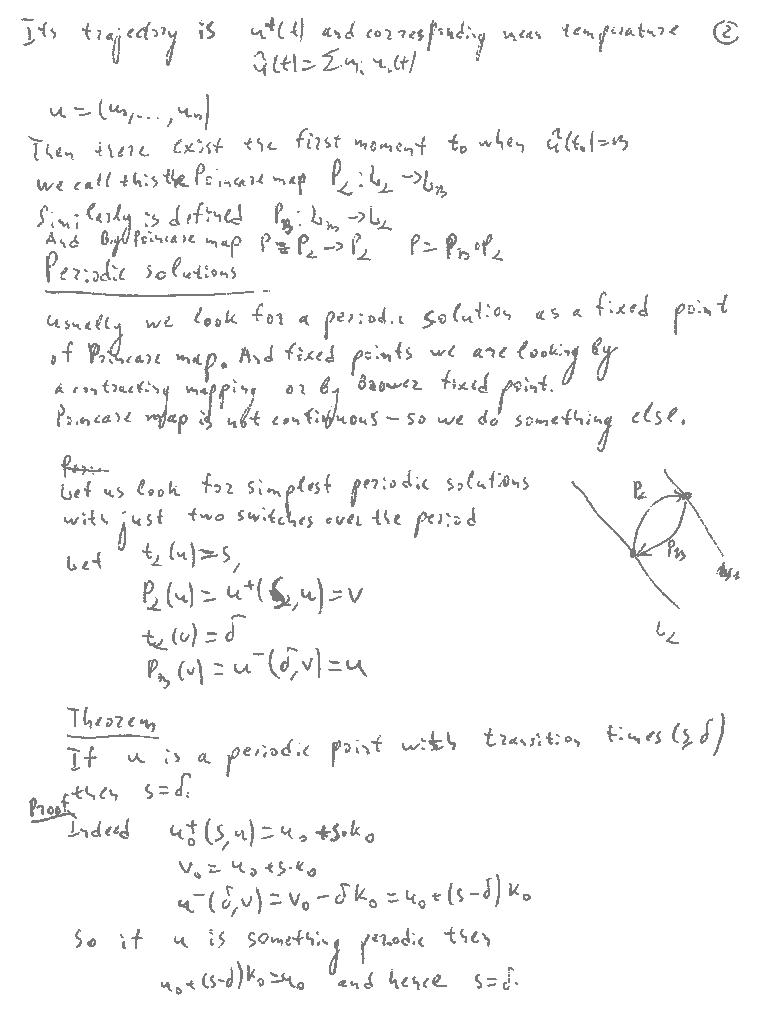 Its trajectory is u⁺(t) and corresponding mean temperature ②
û(t) = Σ mᵢ uᵢ(t)
u = (u₀, ..., uₙ)
Then there exist the first moment t₀ when û(t₀) = β
we call this the Poincare map P_α : L_α → L_β
Similarly is defined P_β : L_β → L_α
And By Poincare map P = P_α → P_α P = P_β ∘ P_α
Periodic solutions
Usually we look for a periodic solution as a fixed point
of Poincare map. And fixed points we are looking by
a contracting mapping or by Brower fixed point.
Poincare map is not continuous - so we do something else.
Let us look for simplest periodic solutions
with just two switches over the period
Let t_α(u) = s,
P_α(u) = u⁺(s, u) = v
t_α(v) = δ
P_β(v) = u⁻(δ, v) = u
P_α
P_β
L_β
L_α
Theorem
If u is a periodic point with transition times (s, δ)
then s = δ.
Proof
Indeed u₀⁺(s, u) = u₀ + s·k₀
v₀ = u₀ + s·k₀
u⁻(δ, v) = v₀ - δk₀ = u₀ + (s-δ)k₀
So if u is something periodic then
u₀ + (s-δ)k₀ = u₀ and hence s = δ.